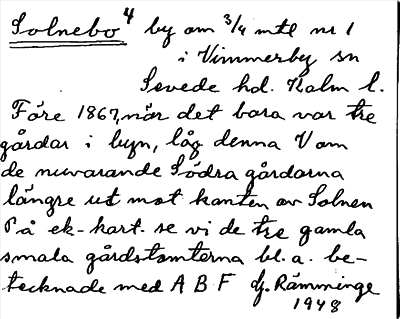 Solnebo⁴ by om 3/4 mtl nr 1
i Vimmerby sn
Sevede hd. Kalm l.
Före 1867, när det bara var tre
gårdar i byn, låg denna V om
de nuvarande Södra gårdarna
längre ut mot kanten av Solnen
På ek-kart. se vi de tre gamla
smala gårdstomterna bl. a. be-
tecknade med A B F fj. Rämminge
1948